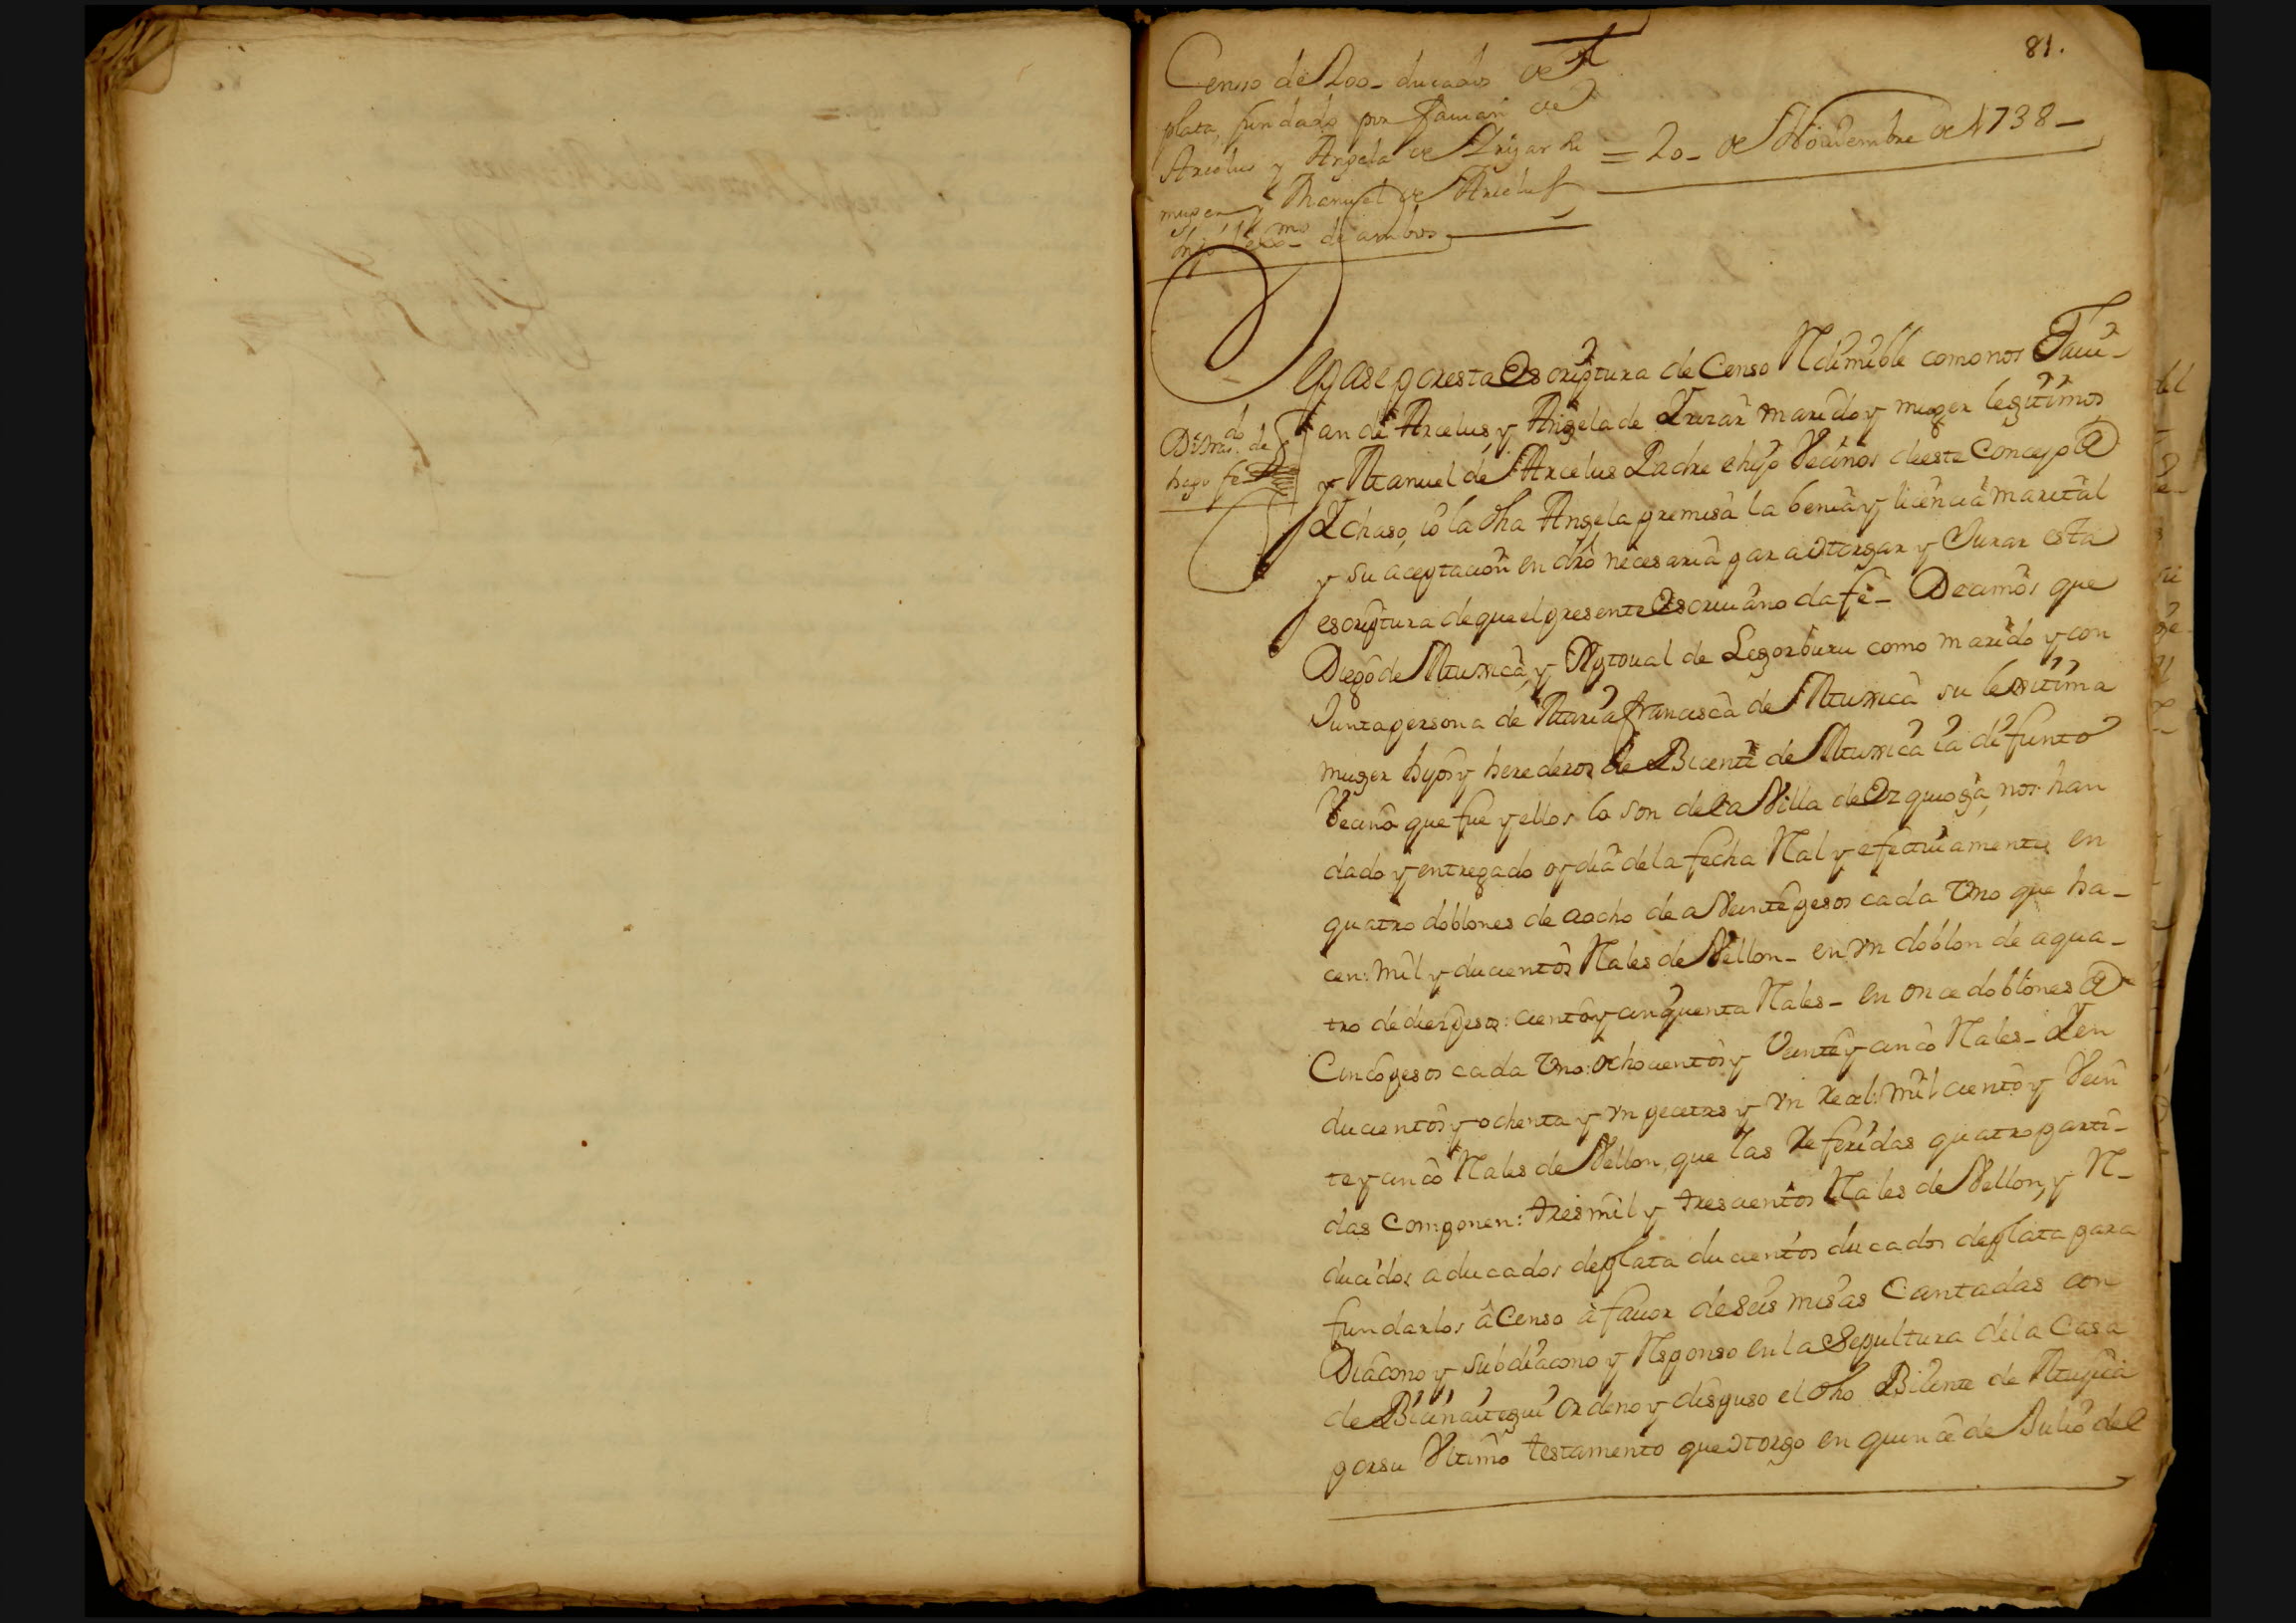 81.
Censo de 200_ ducados de
plata, fundado por Fauian de
Arcelus y Angela de Yrizar su
muger y Manuel de Arcelus
hijo lexmo de ambos
= 20_ de Nouiembre de 1738_
Sepase por esta Escriptura de Censo Rdimible como nos Faui-
an de Arcelus y Angela de Yrizar marido y muger legitimos
y Manuel de Arcelus Padre e hijo Vecinos de este Concejo de
Ychaso, io la dha Angela premisa la benia y licencia marital
y su aceptacion en dro necesaria para otorgar y Jurar esta
escriptura de que el presente Escriuano da fe_ Decimos que
Diego de Muxica, y Xptoual de Legorburu como marido y con
Junta persona de Maria francisca de Muxica su lexitima
muger hijos y herederos de Bicente de Muxica ia difunto
Vecino que fue y ellos lo son de la Villa de Ezquioga, nos han
dado y entregado oy dia de la fecha Ral y efectiuamente en
quatro doblones de aocho de a Veinte pesos cada Uno que ha-
cen: mil y ducientos Rales de Vellon_ en vn doblon de aqua-
tro de diez pesos: ciento y cinquenta Rales_ en once doblones de
Cinco pesos cada Uno: ochocientos y Veinte y cinco Rales_ Y en
ducientos y ochenta y vn pesetas y vn real: mil ciento y Vein
te y cinco Rales de Vellon, que las referidas quatro parti-
das componen: tres mil y trescientos Rales de Vellon, y R-
ducidos a ducados de plata ducientos ducados de plata para
fundarlos à Censo à fauor de seis misas Cantadas con
Diacono y subdiacono y Rsponso en la Sepultura de la Casa
de ordeno y dispuso el dho Bicente de Muxica
por su Vltimo testamento que otorgo en quince de Julio del
do
Distras. de
hago fe